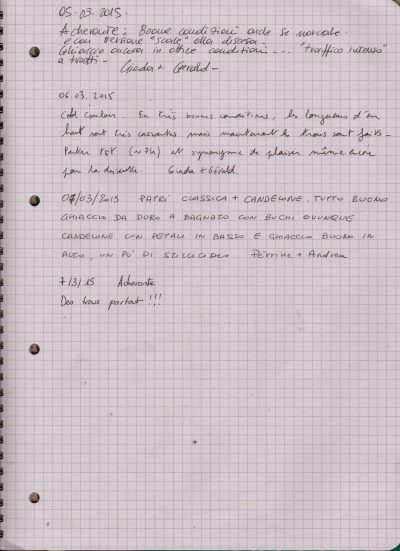 05-03-2015.
Acheronte: Buone condizioni anche se nevicate.
e con versione "scale" alla discesa.
Ghiaccio ancora in ottime condizioni... "traffico intenso"
a tratti - Giada + Gerald -
06.03.2015
Cold Couloir. En très bonnes conditions, les longueurs d'en
haut sont très cassantes mais maintenant les trous sont faits -
Partir tôt (~7h) est synonyme de plaisir même
pour la descente. Giada + Gérald.
07/03/2015 PATRÌ CLASSICA + CANDELONE. TUTTO BUONO
GHIACCIO DA DURO A BAGNATO CON BUCHI OVUNQUE
CANDELONE CON PETALI IN BASSO E GHIACCIO BUONO IN
ALTO, UN PO' DI STILLICIDIO Perrine + Andrea
7/3/15 Acheronte
Des trous partout !!!